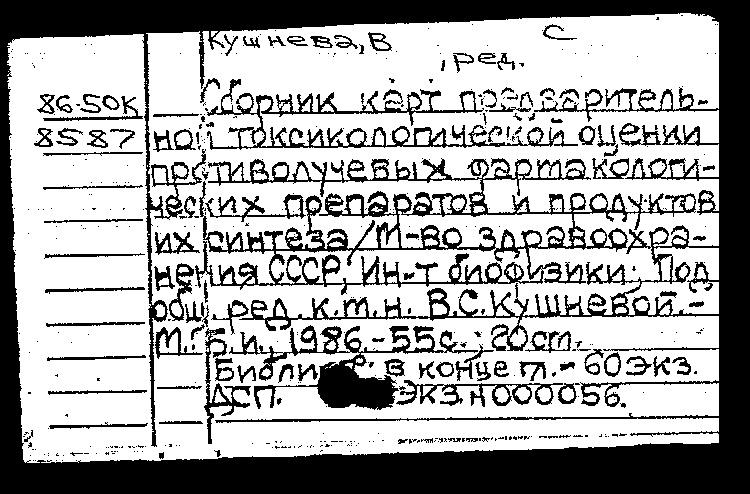 Кушнева, В С
, ред.
86-50К Сборник карт предваритель-
8587 ной токсикологической оценки
противолучевых фармакологи-
ческих препаратов и продуктов
их синтеза / М-во здравоохра-
нения СССР, Ин-т биофизики; Под
общ. ред. к.м.н. В.С. Кушневой. -
М.: Б.и., 1986. - 55с.; 20см.
Библиогр. в конце гл. - 60 экз.
ДСП. ЭКЗ.Н000056.